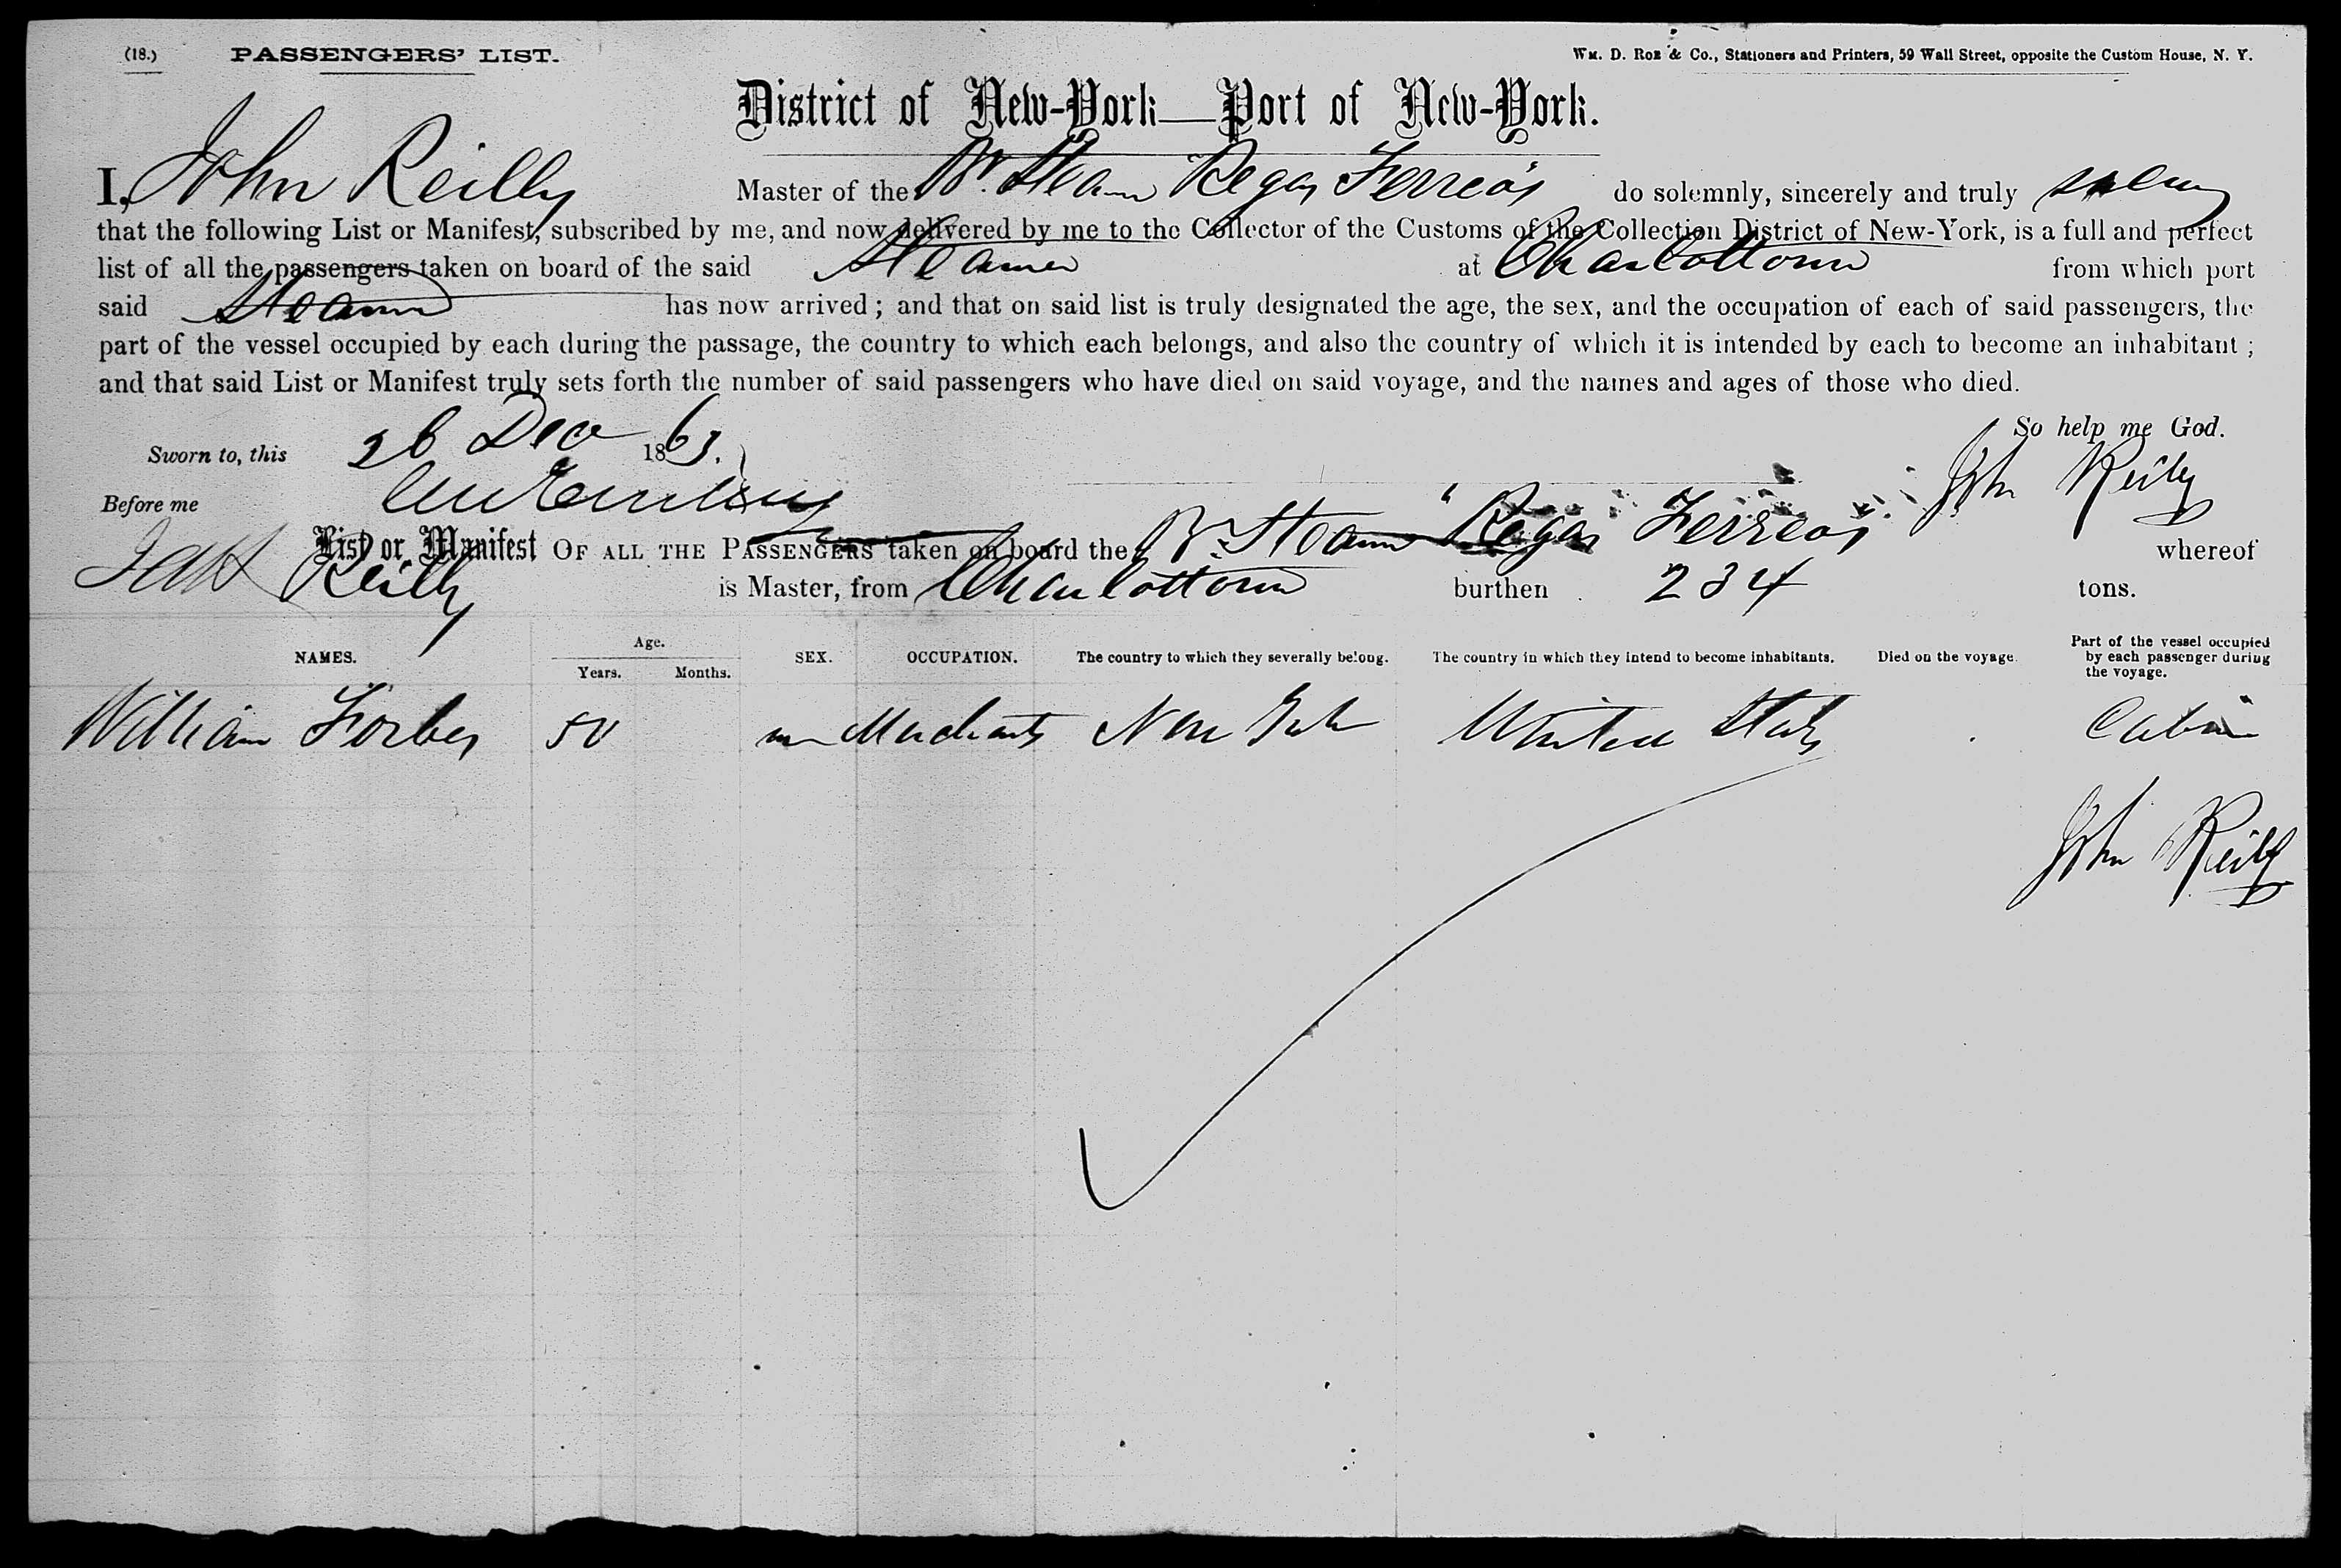 (18.) PASSENGERS' LIST. Wm. D. Roe & Co., Stationers and Printers, 59 Wall Street, opposite the Custom House, N. Y.
District of New-York—Port of New-York.
I, John Reilly Master of the Br. Steam Ferreos do solemnly, sincerely and truly
that the following List or Manifest, subscribed by me, and now delivered by me to the Collector of the Customs of the Collection District of New-York, is a full and perfect
list of all the passengers taken on board of the said Steamer at Charlottown from which port
said Steamer has now arrived; and that on said list is truly designated the age, the sex, and the occupation of each of said passengers, the
part of the vessel occupied by each during the passage, the country to which each belongs, and also the country of which it is intended by each to become an inhabitant;
and that said List or Manifest truly sets forth the number of said passengers who have died on said voyage, and the names and ages of those who died.
So help me God.
Sworn to, this 26 Dec 1863. John Reilly
Before me
List or Manifest OF ALL THE PASSENGERS taken on board the Br. Steam Ferreos whereof
Reilly is Master, from Charlottown burthen 234 tons.
NAMES. Age. Years. Months. SEX. OCCUPATION. The country to which they severally belong. The country in which they intend to become inhabitants. Died on the voyage. Part of the vessel occupied by each passenger during the voyage.
William Forbes 50 m Merchants New York United States Cabin
John Reilly